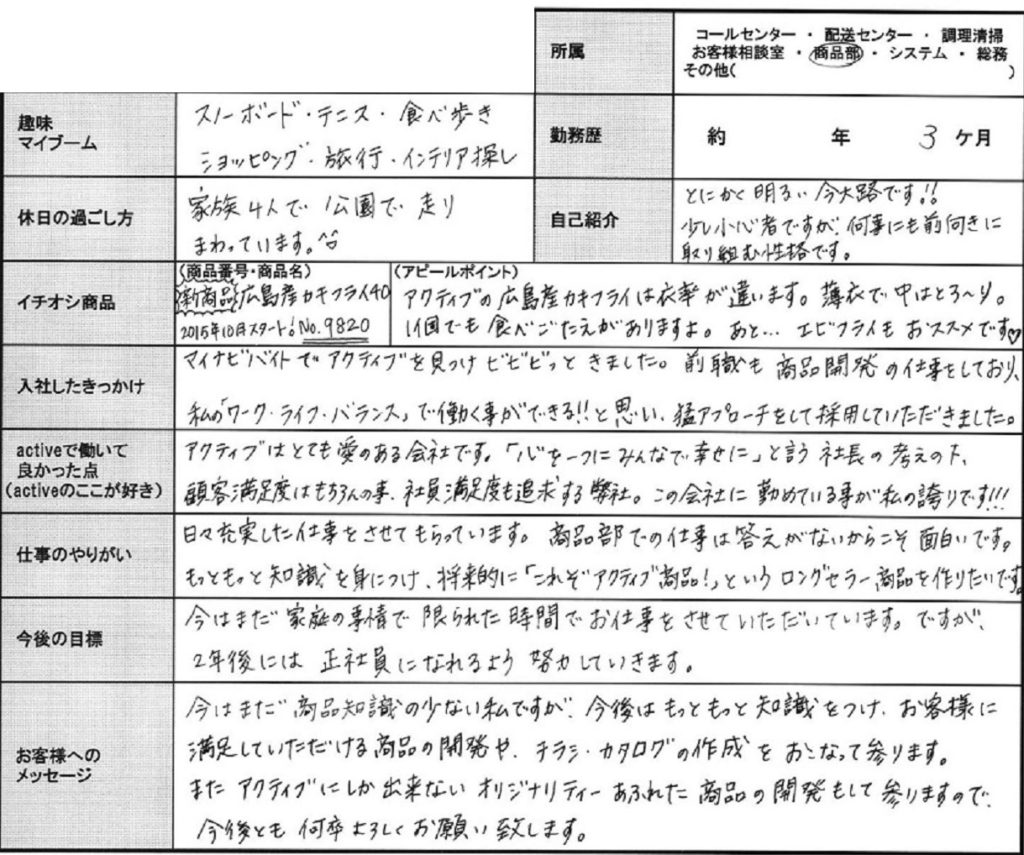 所属
コールセンター ・ 配送センター ・ 調理清掃
お客様相談室 ・ 商品部 ・ システム ・ 総務
その他( )
趣味
マイブーム
スノーボード・テニス・食べ歩き
ショッピング・旅行・インテリア探し
勤務歴
約 年 3 ケ月
休日の過ごし方
家族4人で 公園で 走り
まわっています。^^
自己紹介
とにかく明るい今大路です!!
少し小心者ですが、何事にも前向きに
取り組む性格です。
イチオシ商品
(商品番号・商品名)
新商品 広島産カキフライ40
2015年10月スタート! No.9820
(アピールポイント)
アクティブの広島産カキフライは衣率が違います。薄衣で中はとろ〜り。
1個でも食べごたえがありますよ。あと… エビフライもおススメです♡
入社したきっかけ
マイナビバイトでアクティブを見つけビビビっときました。前職も商品開発の仕事をしており、
私の「ワーク・ライフ・バランス」で働く事ができる!!と思い、猛アプローチをして採用していただきました。
activeで働いて
良かった点
(activeのここが好き)
アクティブはとても愛のある会社です。「心を一つにみんなで幸せに」と言う社長の考えの下、
顧客満足度はもちろんの事、社員満足度も追求する弊社。この会社に勤めている事が私の誇りです!!!
仕事のやりがい
日々充実した仕事をさせてもらっています。商品部での仕事は答えがないからこそ面白いです。
もっともっと知識を身につけ、将来的に「これぞアクティブ商品!」というロングセラー商品を作りたいです。
今後の目標
今はまだ家庭の事情で限られた時間でお仕事をさせていただいています。ですが、
2年後には正社員になれるよう努力していきます。
お客様への
メッセージ
今はまだ商品知識の少ない私ですが、今後はもっともっと知識をつけ、お客様に
満足していただける商品の開発や、チラシ・カタログの作成をおこなって参ります。
またアクティブにしか出来ないオリジナリティーあふれた商品の開発もして参りますので、
今後とも何卒よろしくお願い致します。